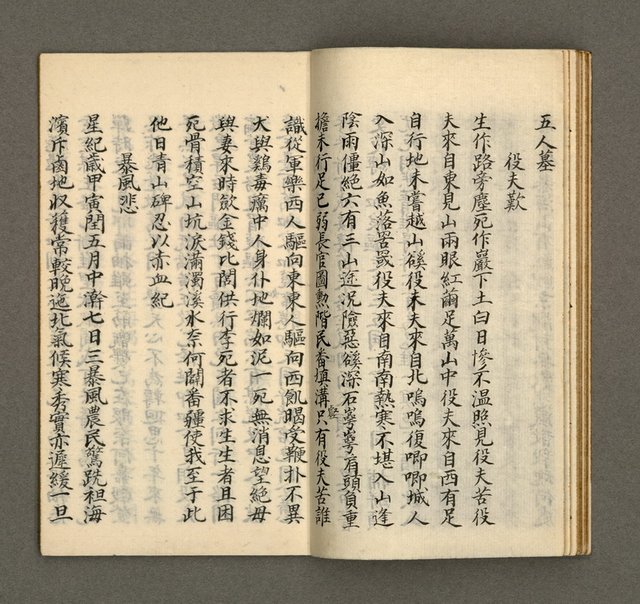 五人墓
役夫歎
生作路旁塵死作巖下土白日慘不温照見役夫苦役
夫來自東見山兩眼紅繭足萬山中役夫來自西有足
自行地未嘗越山谿役夫夫來自北嗚嗚復唧唧城人
入深山如魚落罟罭役夫來自南南熱寒不堪入山逢
陰雨僵絕六有三山途況險惡谿深石𡾋𡾋有頭負重
擔未行足已弱長官圖勲階民脊塡溝壑只有役夫苦誰
識從軍樂西人驅向東東人驅向西飢暍受鞭扑不異
犬與鷄毒癘中人身仆地爛如泥一死無消息望絕母
與妻來時歛金錢比閭供行李死者不求生生者且因
死骨積空山坑淚滿濁溪水奈何闢番疆使我至于此
他日青山碑忍以赤血紀
暴風悲
星紀歲甲寅閏五月中澣七日三暴風農民驚跣袒海
濱斥鹵地収獲常較晚迤北氣候寒秀實亦遲緩一旦